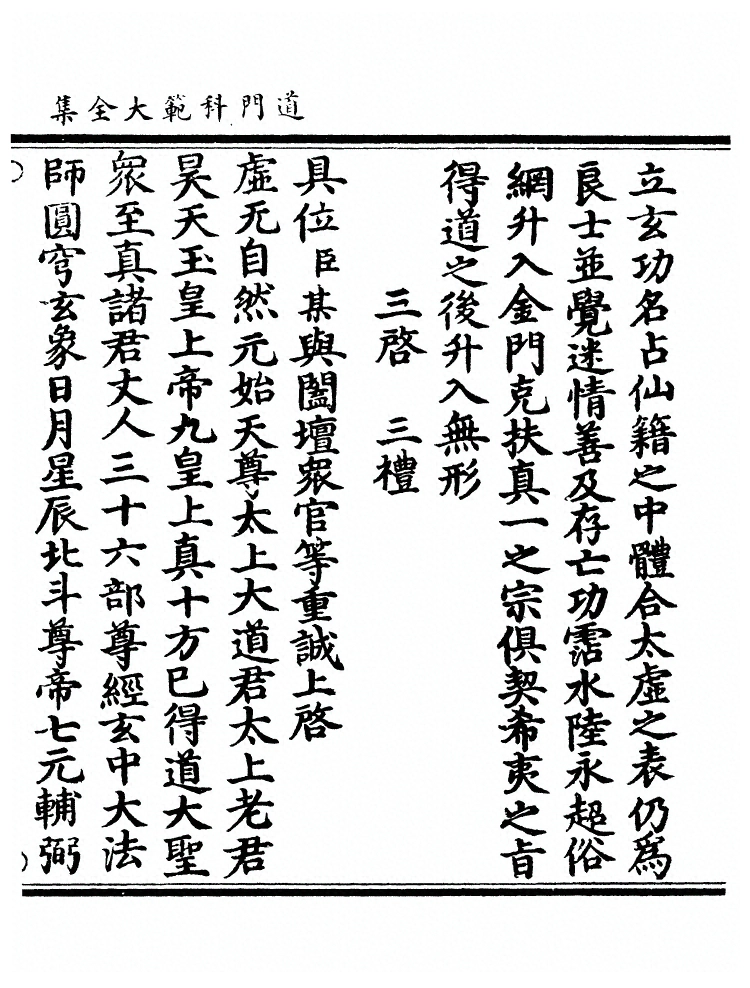 道門科範大全集
立玄功名占仙籍之中體合太虛之表仍爲
良士並覺迷情善及存亡功霑水陸永超俗
網升入金門克扶真一之宗俱契希夷之旨
得道之後升入無形
三啓　三禮
具位臣某與闔壇眾官等重誠上啓
虛无自然元始天尊太上大道君太上老君
昊天玉皇上帝九皇上真十方已得道大聖
眾至真諸君丈人三十六部尊經玄中大法
師圓穹玄象日月星辰北斗尊帝七元輔弼